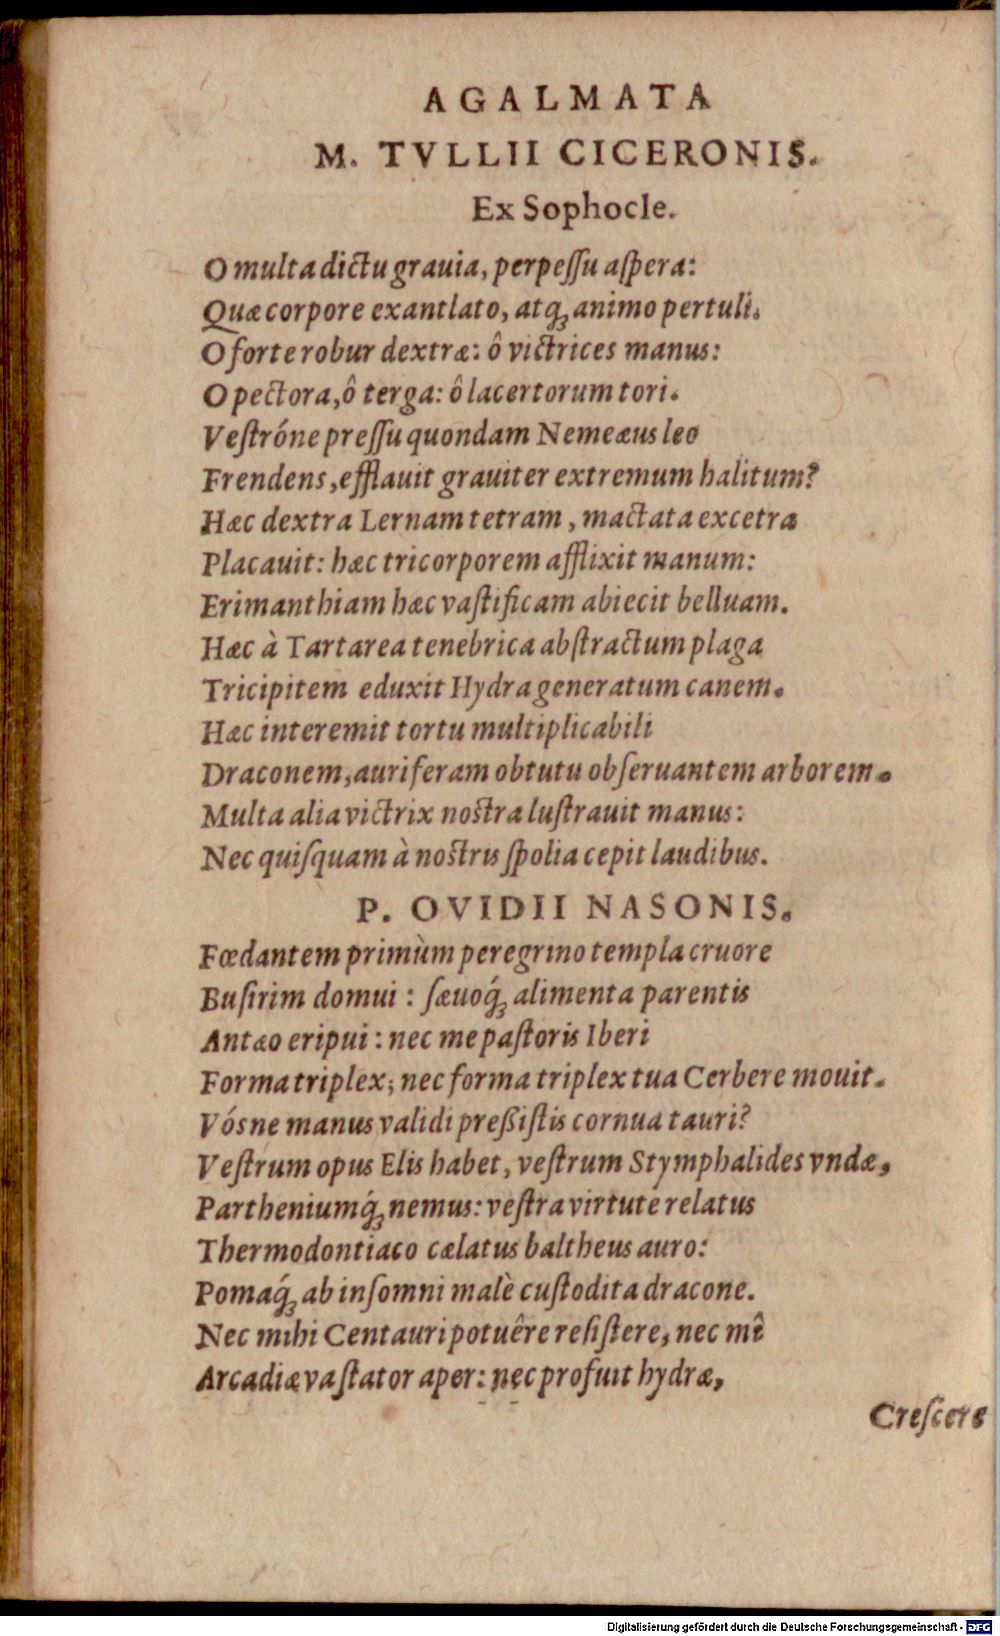 AGALMATA
M. TVLLII CICERONIS.
Ex Sophocle.
O multa dictu grauia, perpeſſu aſpera:
Quæ corpore exantlato, atq́ꝫ animo pertuli.
O forte robur dextræ: ô victrices manus:
O pectora, ô terga: ô lacertorum tori.
Veſtróne preſſu quondam Nemeæus leo
Frendens, efflauit grauiter extremum halitum?
Hæc dextra Lernam tetram, mactata excetra
Placauit: hæc tricorporem afflixit manum:
Erimanthiam hæc vaſtificam abiecit belluam.
Hæc à Tartarea tenebrica abſtractum plaga
Tricipitem eduxit Hydra generatum canem.
Hæc interemit tortu multiplicabili
Draconem, auriferam obtutu obſeruantem arborem.
Multa alia victrix noſtra luſtrauit manus:
Nec quiſquam à noſtris ſpolia cepit laudibus.
P. OVIDII NASONIS.
Fœdantem primùm peregrino templa cruore
Buſirim domui: ſæuoq́ꝫ alimenta parentis
Antæo eripui: nec me paſtoris Iberi
Forma triplex; nec forma triplex tua Cerbere mouit.
Vósne manus validi preßiſtis cornua tauri?
Veſtrum opus Elis habet, veſtrum Stymphalides vndæ,
Partheniumq́ꝫ nemus: veſtra virtute relatus
Thermodontiaco cælatus baltheus auro:
Pomaq́ꝫ ab inſomni malè cuſtodita dracone.
Nec mihi Centauri potuêre reſiſtere, nec mî
Arcadiæ vaſtator aper: nec profuit hydræ,
Creſcere
Digitalisierung gefördert durch die Deutsche Forschungsgemeinschaft - DFG